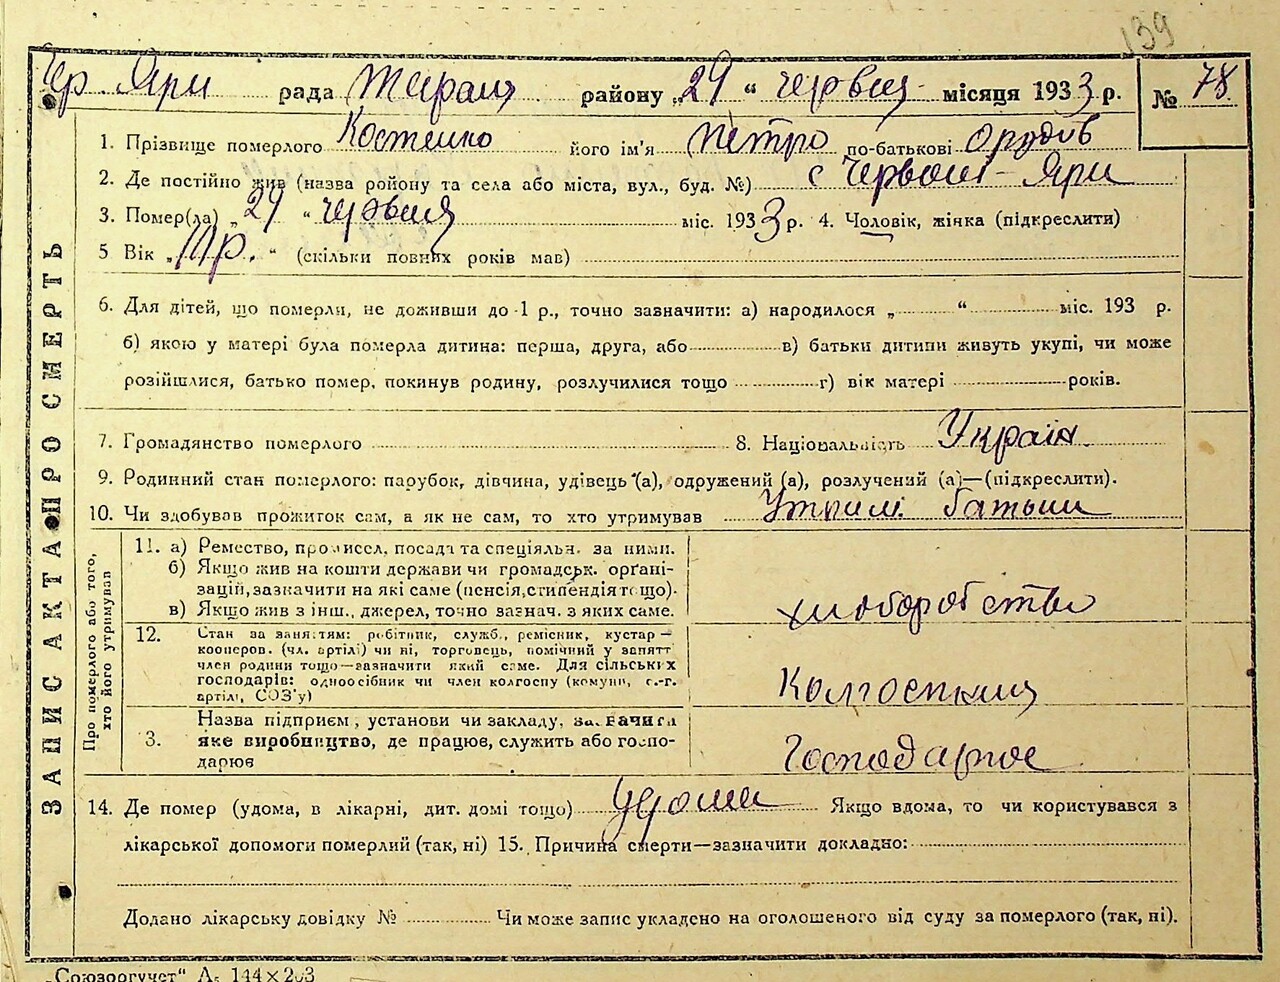 139
Чр. Яри рада району „24 “ червня місяця 1933 р. № 78
1. Прізвище померлого Костенко його ім'я Петро по-батькові
2. Де постійно жив (назва ройону та села або міста, вул., буд. №) с Червоні-Яри
3. Помер(ла) „24 “ червня міс. 1933 р. 4. Чоловік, жінка (підкреслити)
5 Вік „ “ (скільки повних років мав)
6. Для дітей, що померли, не доживши до 1 р., точно зазначити: а) народилося „ “ міс. 193 р.
б) якою у матері була померла дитина: перша, друга, або в) батьки дитини живуть укупі, чи може
розійшлися, батько помер, покинув родину, розлучилися тощо г) вік матері років.
7. Громадянство померлого 8. Національність Україн.
9. Родинний стан померлого: парубок, дівчина, удівець (а), одружений (а), розлучений (а)—(підкреслити).
10. Чи здобував прожиток сам, а як не сам, то хто утримував Утрим. батьки
11. а) Ремество, промиссл, посада та спеціяльн. за ними.
б) Якщо жив на кошти держави чи громадськ. орґані-
зацій, зазначити на які саме (пенсія, стипендія тощо).
в) Якщо жив з інш., джерел, точно зазнач. з яких саме.
хліборобство
12. Стан за заняттям: робітник, служб., ремісник, кустар—
кооперов. (чл. артілі) чи ні, торговець, помічний у запятт
член родини тощо—зазначити який саме. Для сільських
господарів: одноосібник чи член колгоспу (комуни, с.-г.
артілі, СОЗ'у)
Колгоспник
3. Назва підприєм., установи чи закладу, зазначити
яке виробництво, де працює, служить або госпо-
дарює
14. Де помер (удома, в лікарні, дит. домі тощо) удома Якщо вдома, то чи користувався з
лікарської допомоги померлий (так, ні) 15. Причина смерти—зазначити докладно:
Додано лікарську довідку № Чи може запис укладено на оголошеного від суду за померлого (так, ні).
ЗАПИС АКТА ПРО СМЕРТЬ
Про померлого або того,
хто його утримував
„Союзоргучет“ А5 144×203